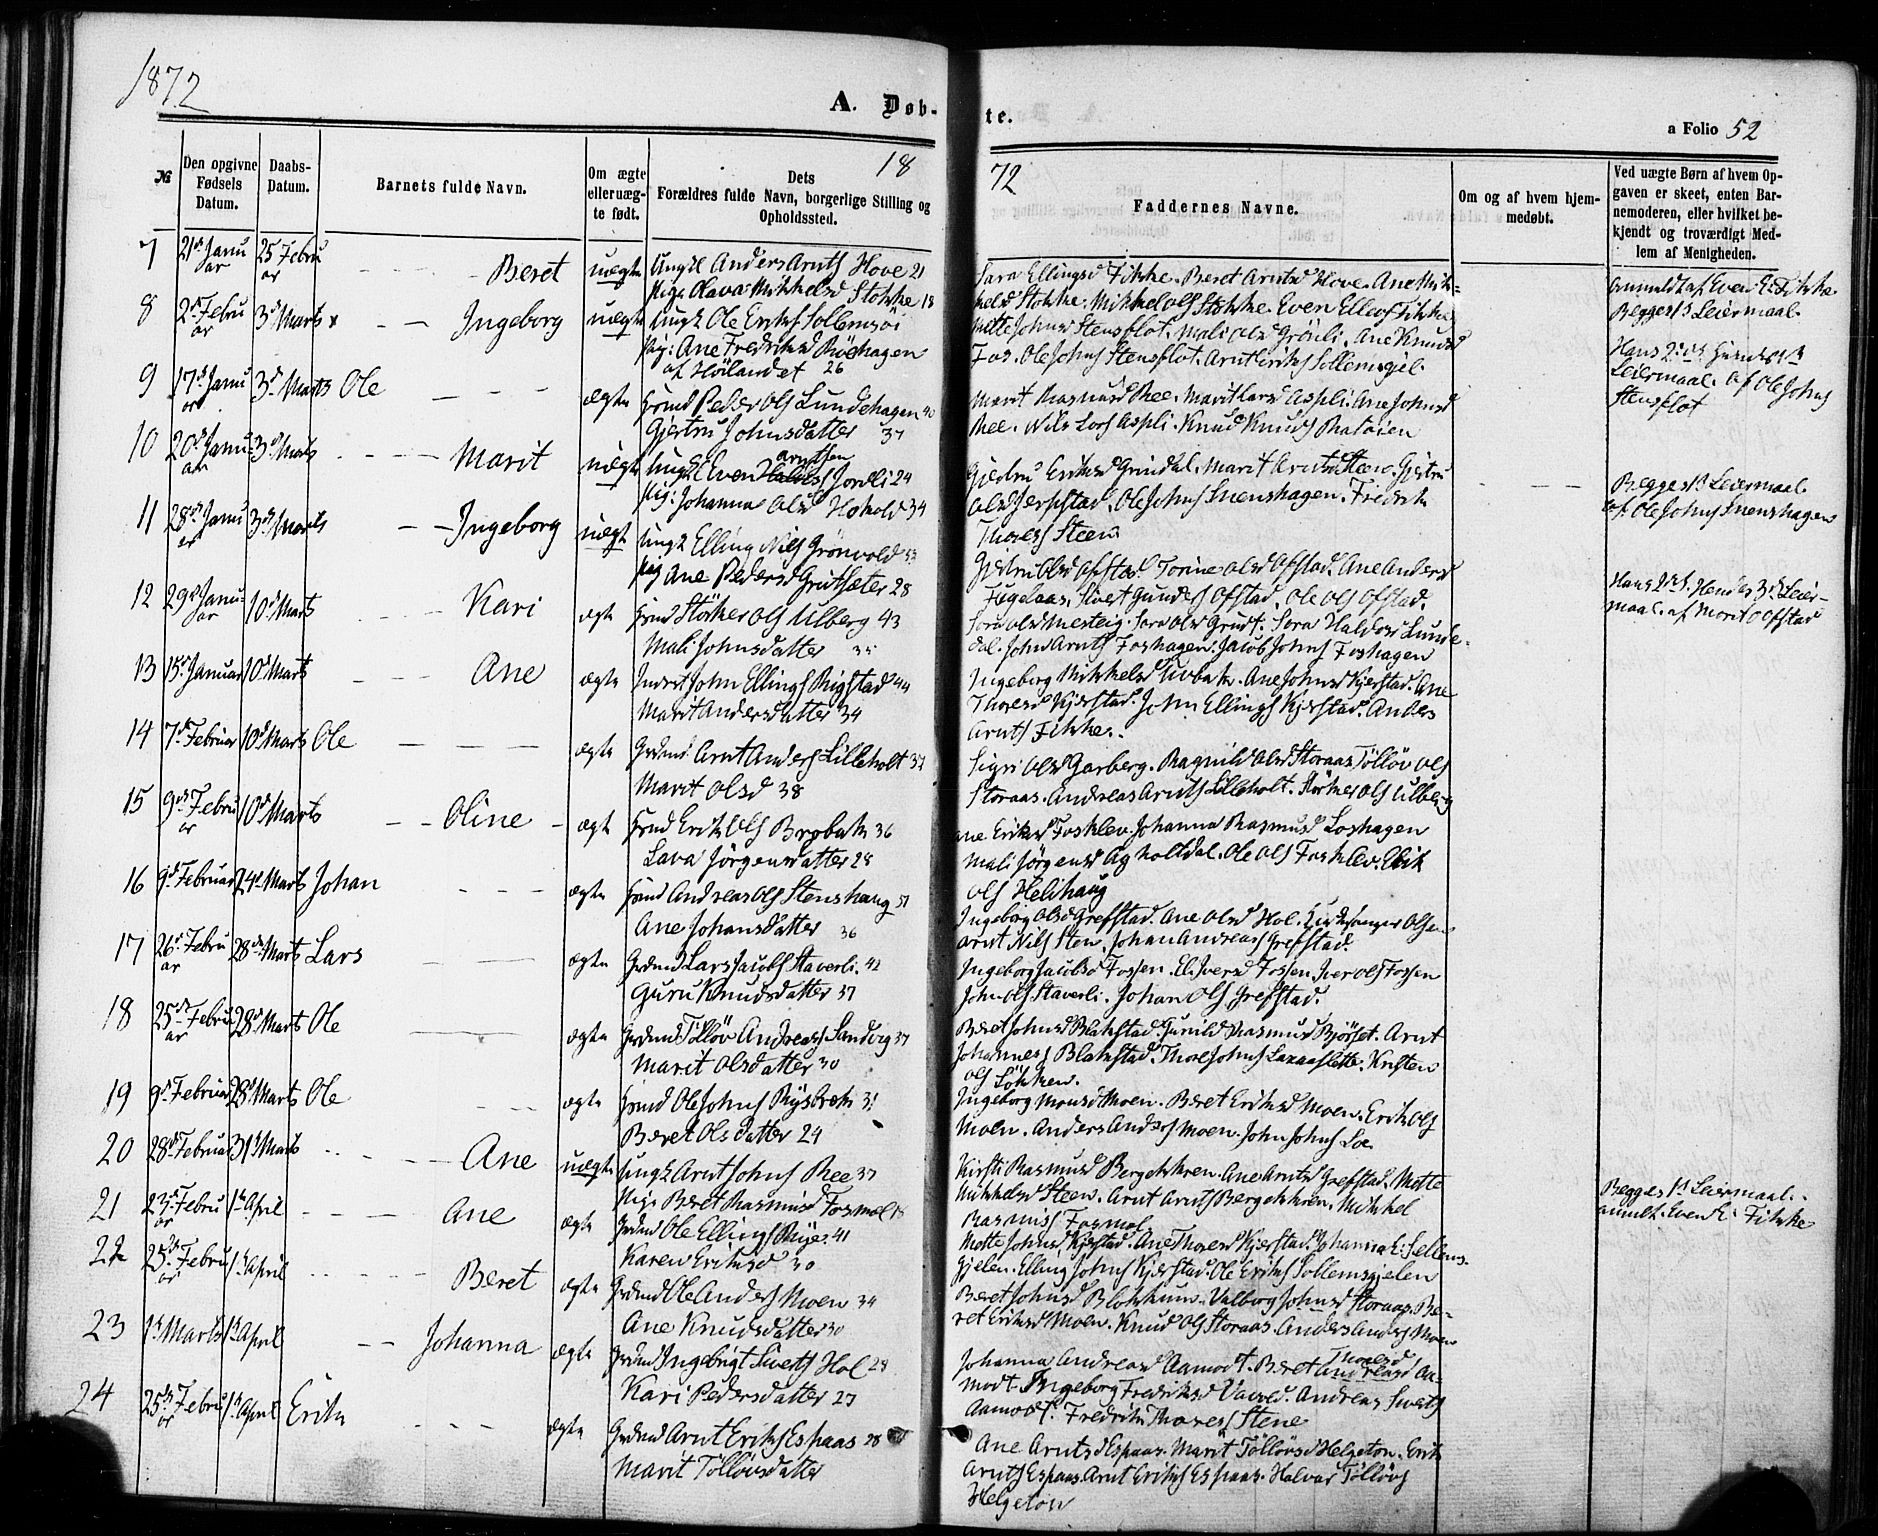 1872
A. Døb-
te.
a Folio 52
18
72
№
Den opgivne Fødsels Datum.
Daabs-Datum.
Barnets fulde Navn.
Om ægte eller uæg-te født.
Dets Forældres fulde Navn, borgerlige Stilling og Opholdssted.
Faddernes Navne.
Om og af hvem hjem-medøbt.
Ved uægte Børn af hvem Op-gaven er skeet, enten Bar-nemoderen, eller hvilket be-kjendt og troværdigt Med-lem af Menigheden.
7 21 Janu 25 Febru
ar ar
Beret uægte Ungk Anders Arnts Hove 21
Pige Olava Mikkelsd Stokke 18
Sara Ellingsd Fikke. Beret Arntsd Hove. Ane Mik-
kelsd Stokke. Mikkel Ols Stokke. Even Ellefs Fikke
anmeldt af Even E. Fikke
Begges 1st Leiermaal.
8 2d Febru 3d Marts x
ar
Ingeborg uægte Ungk Ole Eriks Sollemsöi
Pig: Ane Fredriksd Röehagen
af Höilandet 26
Mette Johnsd Stensflot. Mali Olsd Grönli. Ane Knudsd
Fos. Ole Johns Stensflot. Arnt Eriks Sollemsgjel.
Hans 2det
Leiermaal. af Ole Johns
Stensflot
9 17d Janu 3d Marts Ole
ar
ægte Peder Ols Lundehagen 40
Gjertru Johnsdatter 37
Marit Rasmusd Ree. Marit Larsd Aspli. Ane Johnsd
Ree. Nils Lars Aspli. Knud Knuds
10 20d Janu 3d Marts
ar
Marit uægte Ungk Even Arntsen Jordli 24
Pig: Johanna Olsd Hokold 34
Gjertru Eriksd Grindal. Marit Arntsd Steen. Gjertru
Olsd Jerpstad. Ole Johns Snenshagen. Fredrik
Thores Steen
Begges 1st Leiermaal
af Ole Johns Snenshagen
11 28de Janu 3d Marts
ar
Ingeborg uægt Ungk Elling Nils Grönvold 33
Pig Ane Pedersd Grutsæter 28
Gjertru Olsd Ofstad. Torine Olsd Ofstad. Ane Andersd
Fugelaas. Sivert Gunders Ofstad. Ole Ols Ofstad.
Hans 2det. Hendes 3d Leier-
maal. af Marit O Ofstad
12 29d Janu- 10d Marts
ar
Kari ægte Störker Ols Ulberg 43
Mali Johnsdatter 35
Sara Olsd Mesteig. Sara Olsd Grut. Sara Haldosd Lunde-
dal. John Arnts Foshagen. Jacob Johns Foshagen
13 15d Januar 10d Marts
Ane ægte Inderst John Ellings Rigstad 44
Marit Andersdatter 34
Ingeborg Mikkelsd Uvbak. Ane Johnsd Kjerstad. Ane
Thoresd Kjerstad. John Ellings Kjerstad. Anders
Arnts Fikke.
14 7d Februar 10d Marts Ole
ægte Grdmd. Arnt Anders Lilleholt 37
Marit Olsd 38
Sigri Olsd Garberg. Ragnild Olsd Storaas. Töllöv Ols
Storaas. Andreas Arnts Lilleholt. Störker Ols Ulberg
15 9de Febru 10d Marts
ar
Oline ægt Erik Ols Brobak 36
Lava Jörgensdatter 28
Ane Eriksd Fosklev. Johanna Rasmusd Loshagen
Mali Jörgensd Agholtdal. Ole Ols Fosklev. Erik
Ols Helihaug
16 9d Februar 24d Marts Johan
ægte Andreas Ols Stenshaug 51
Ane Johansdatter 36
Ingeborg Olsd Grefstad. Ane Olsd Hol. Kirkesanger Olsen
Arnt Nils Sten. Johan Andreas Grefstad.
17 26d Febru 28de Marts Lars
ar
ægte Grdmd Lars Jacobs Staverli. 42
Guru Knudsdatter 37
Ingeborg Jacobsd Fossen. Eli Iversd Fossen. Iver Ols Fossen
John Ols Staverli. Johan Ols Grefstad.
18 25de Febru 28d Marts Ole
ar
ægte Grdmd Töllöv Andreas Sandvig 37
Marit Olsdatter 30
Beret Johnsd Blakstad. Gunild Rasmusd Björset. Arnt
Johannes Blakstad. Thore Johns Laxaaslette. Kristen
Ols Lökken.
19 9d Februar 28d Marts Ole
ægte Ole Johns Rysbrok 31
Beret Olsdatter 24
Ingeborg Monsd Moen. Beret Eriksd Moen. Erik Ols
Moen. Anders Anders Moen. John Johns Loe
20 28de Februar 31t Marts
Ane uægte Ungk Arnt Johns Ree 37
Pige Beret Rasmusd Fosmol
Kirsti Rasmusd Bergekkren. Ane Arntsd Grefstad. Mette
Mikkelsd Steen. Arnt Arnts Bergekkren. Mikkel
Rasmus Fosmol.
Begges 1st Leiermaal.
anmelt. Even E. Fikke
21 23d Febru 1ste April
ar
Ane ægte Grdmd Ole Ellings Riger 41
Karen Eriksd 30
Mette Johnsd Kjerstad. Ane Thoresd Kjerstad. Johanna E. Sollems-
gjelen. Elling Johns Kjerstad. Ole Eriks Sollemsgjelen
22 25de Febru 1st April
ar
Beret ægte Grdmd Ole Anders Moen 34
Ane Knudsdatter 30
Beret Johnsd Blokkum. Valborg Johnsd Storaas. Be-
ret Eriksd Moen. Knud Ols Storaas. Anders Anders Moen
23 1st Marts 1st April
Johanna ægte Grdmd Ingebrigt Siverts Hol 28
Kari Pedersdatter 27
Johanna Andreasd Aamodt. Beret Andreasd Thoresd Aa-
modt. Ingeborg Fredriksd Vaaved. Andreas Siverts
Aamodt. Fredrik Thores Stene
24 25de Febru 1st April Erik
ar
ægte Grdmd Arnt Eriks Espaas 28
Marit Töllövsdatter
Ane Arntsd Espaas. Marit Töllövsd Helgeton. Erik
Arnts Espaas. Arnt Eriks Espaas. Halvar Töllövs
Helgeton